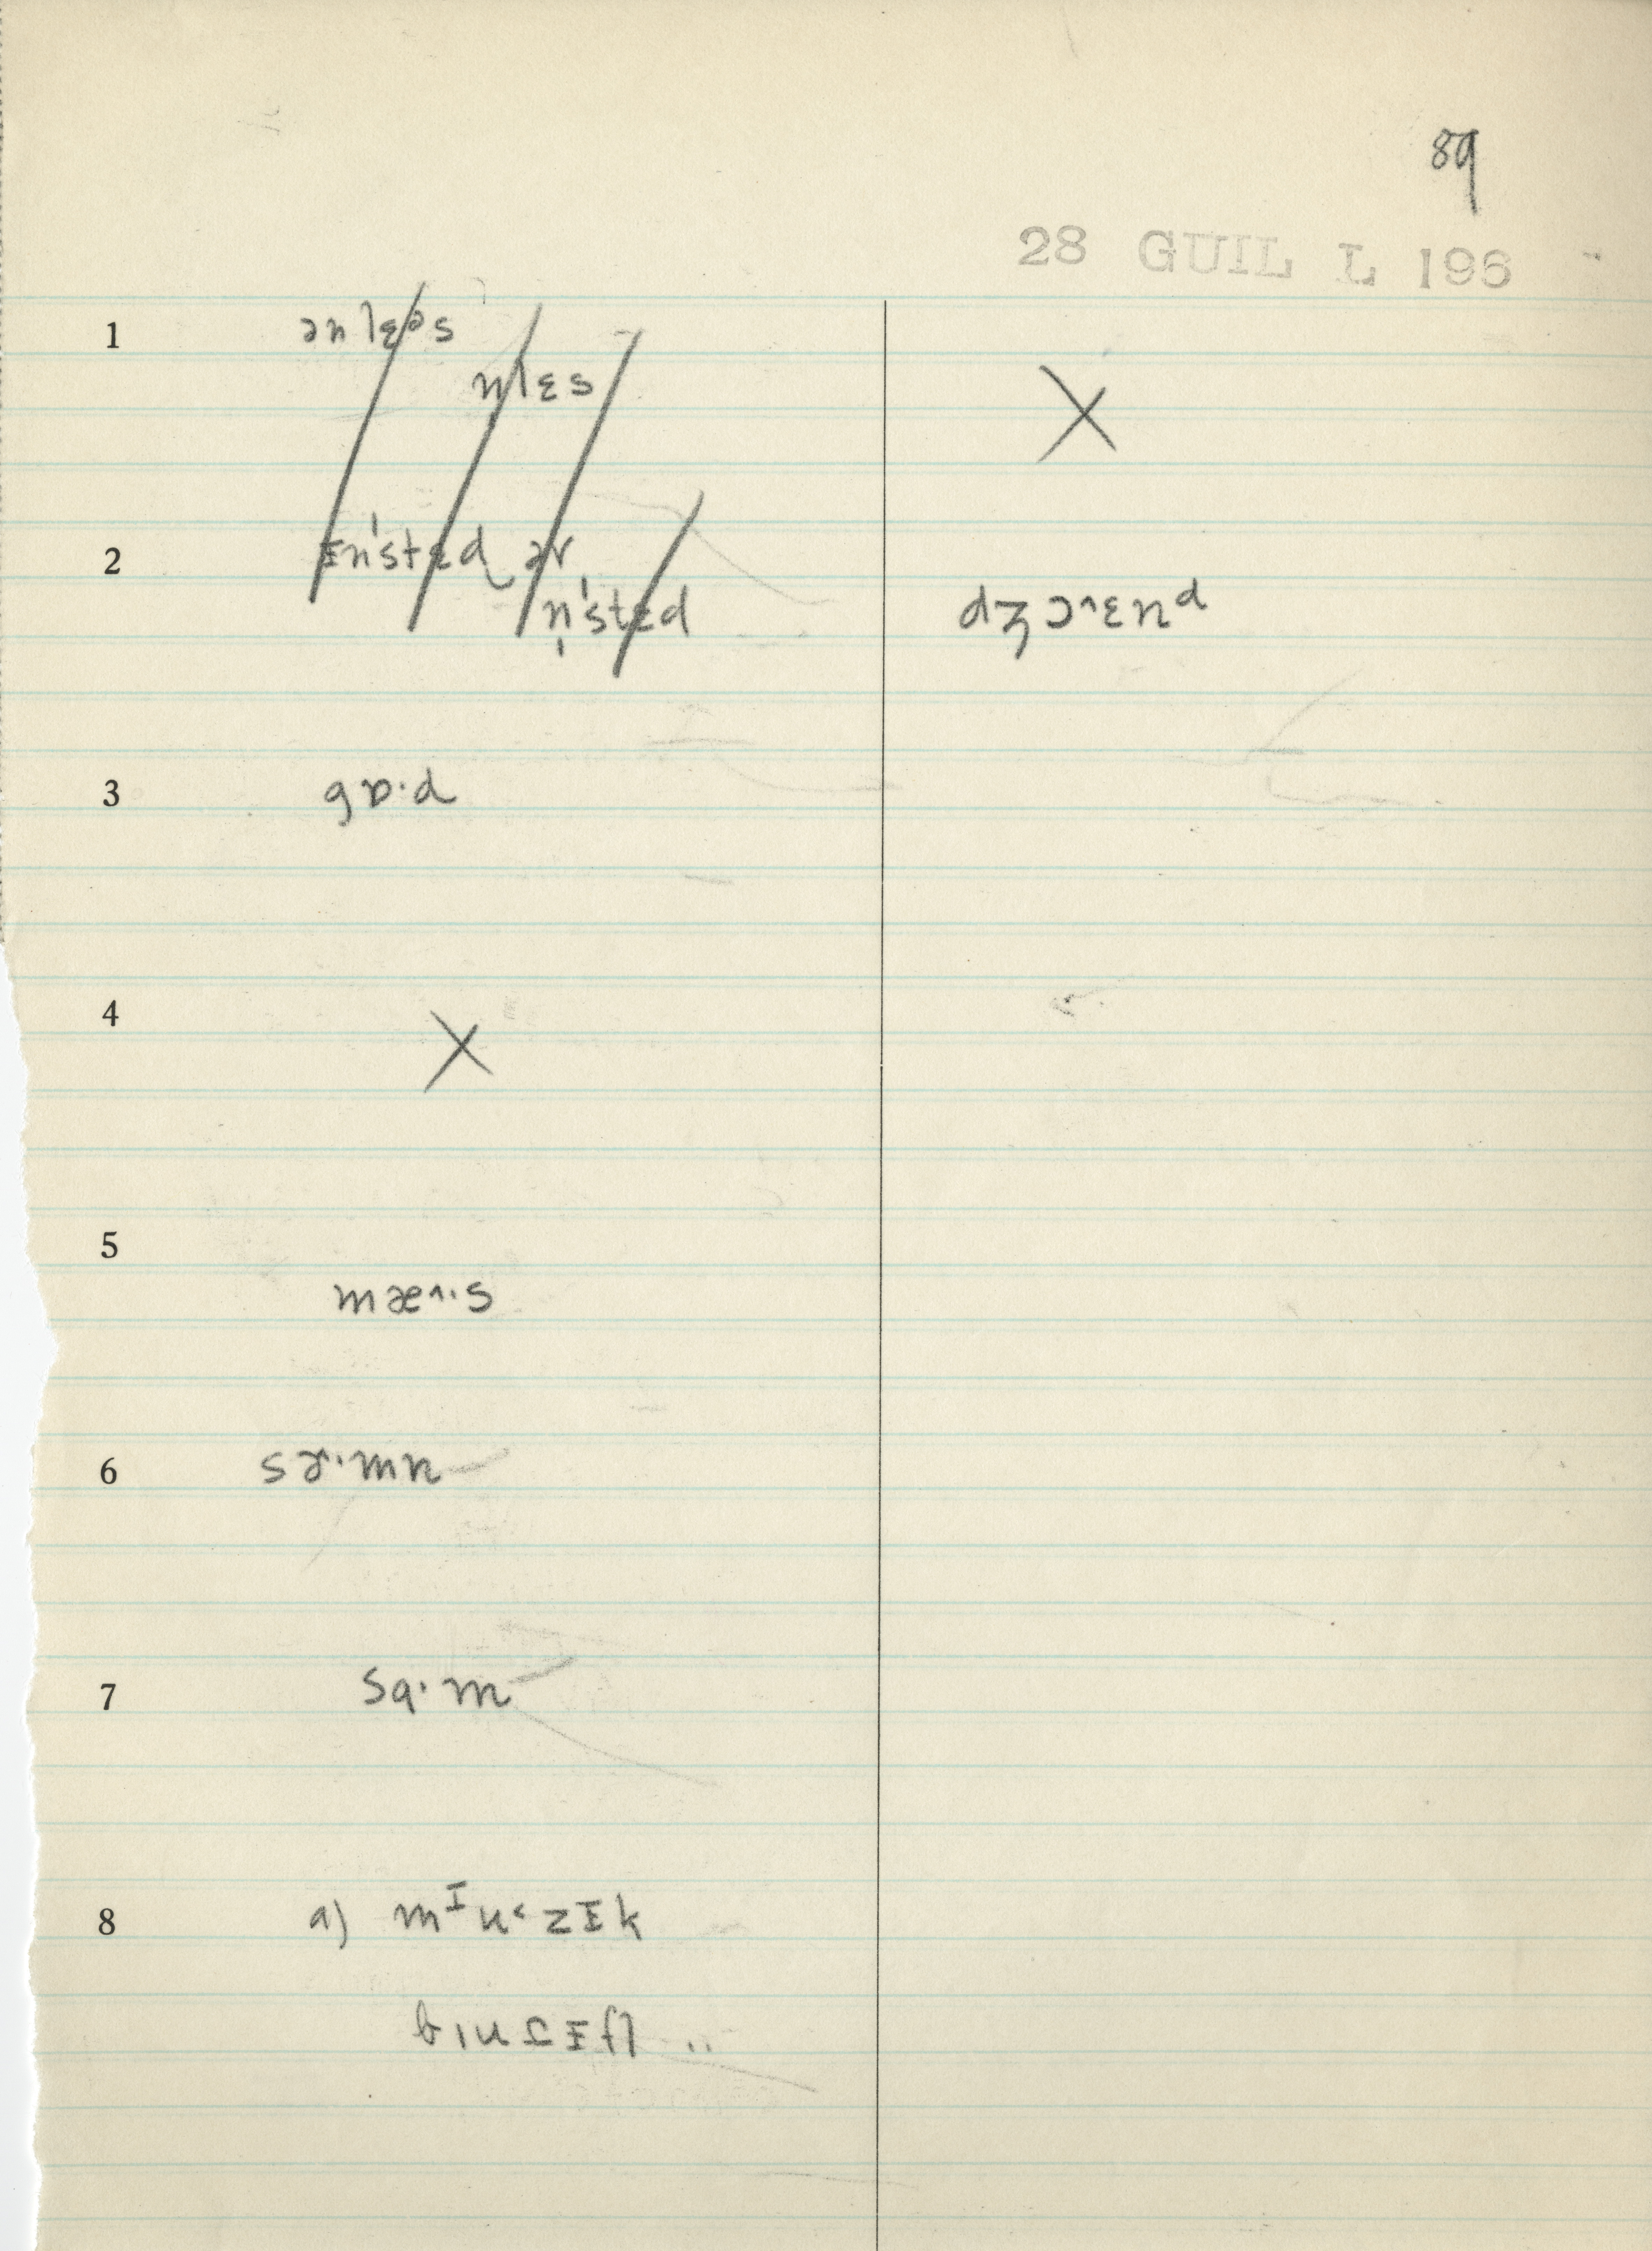 89
28 GUIL L 196
1 ənlɛəs
n̩lɛs
X
2 ɪn'stɛd ər
n̩'stɛd
dʒɔ^ɛnd
3 gɒ·d
4 X
5 mæ^·s
6 sɚ·mn
7 sɑ·m
8 a) mᴵu˂zɨk
bɪuʃɨfl ..